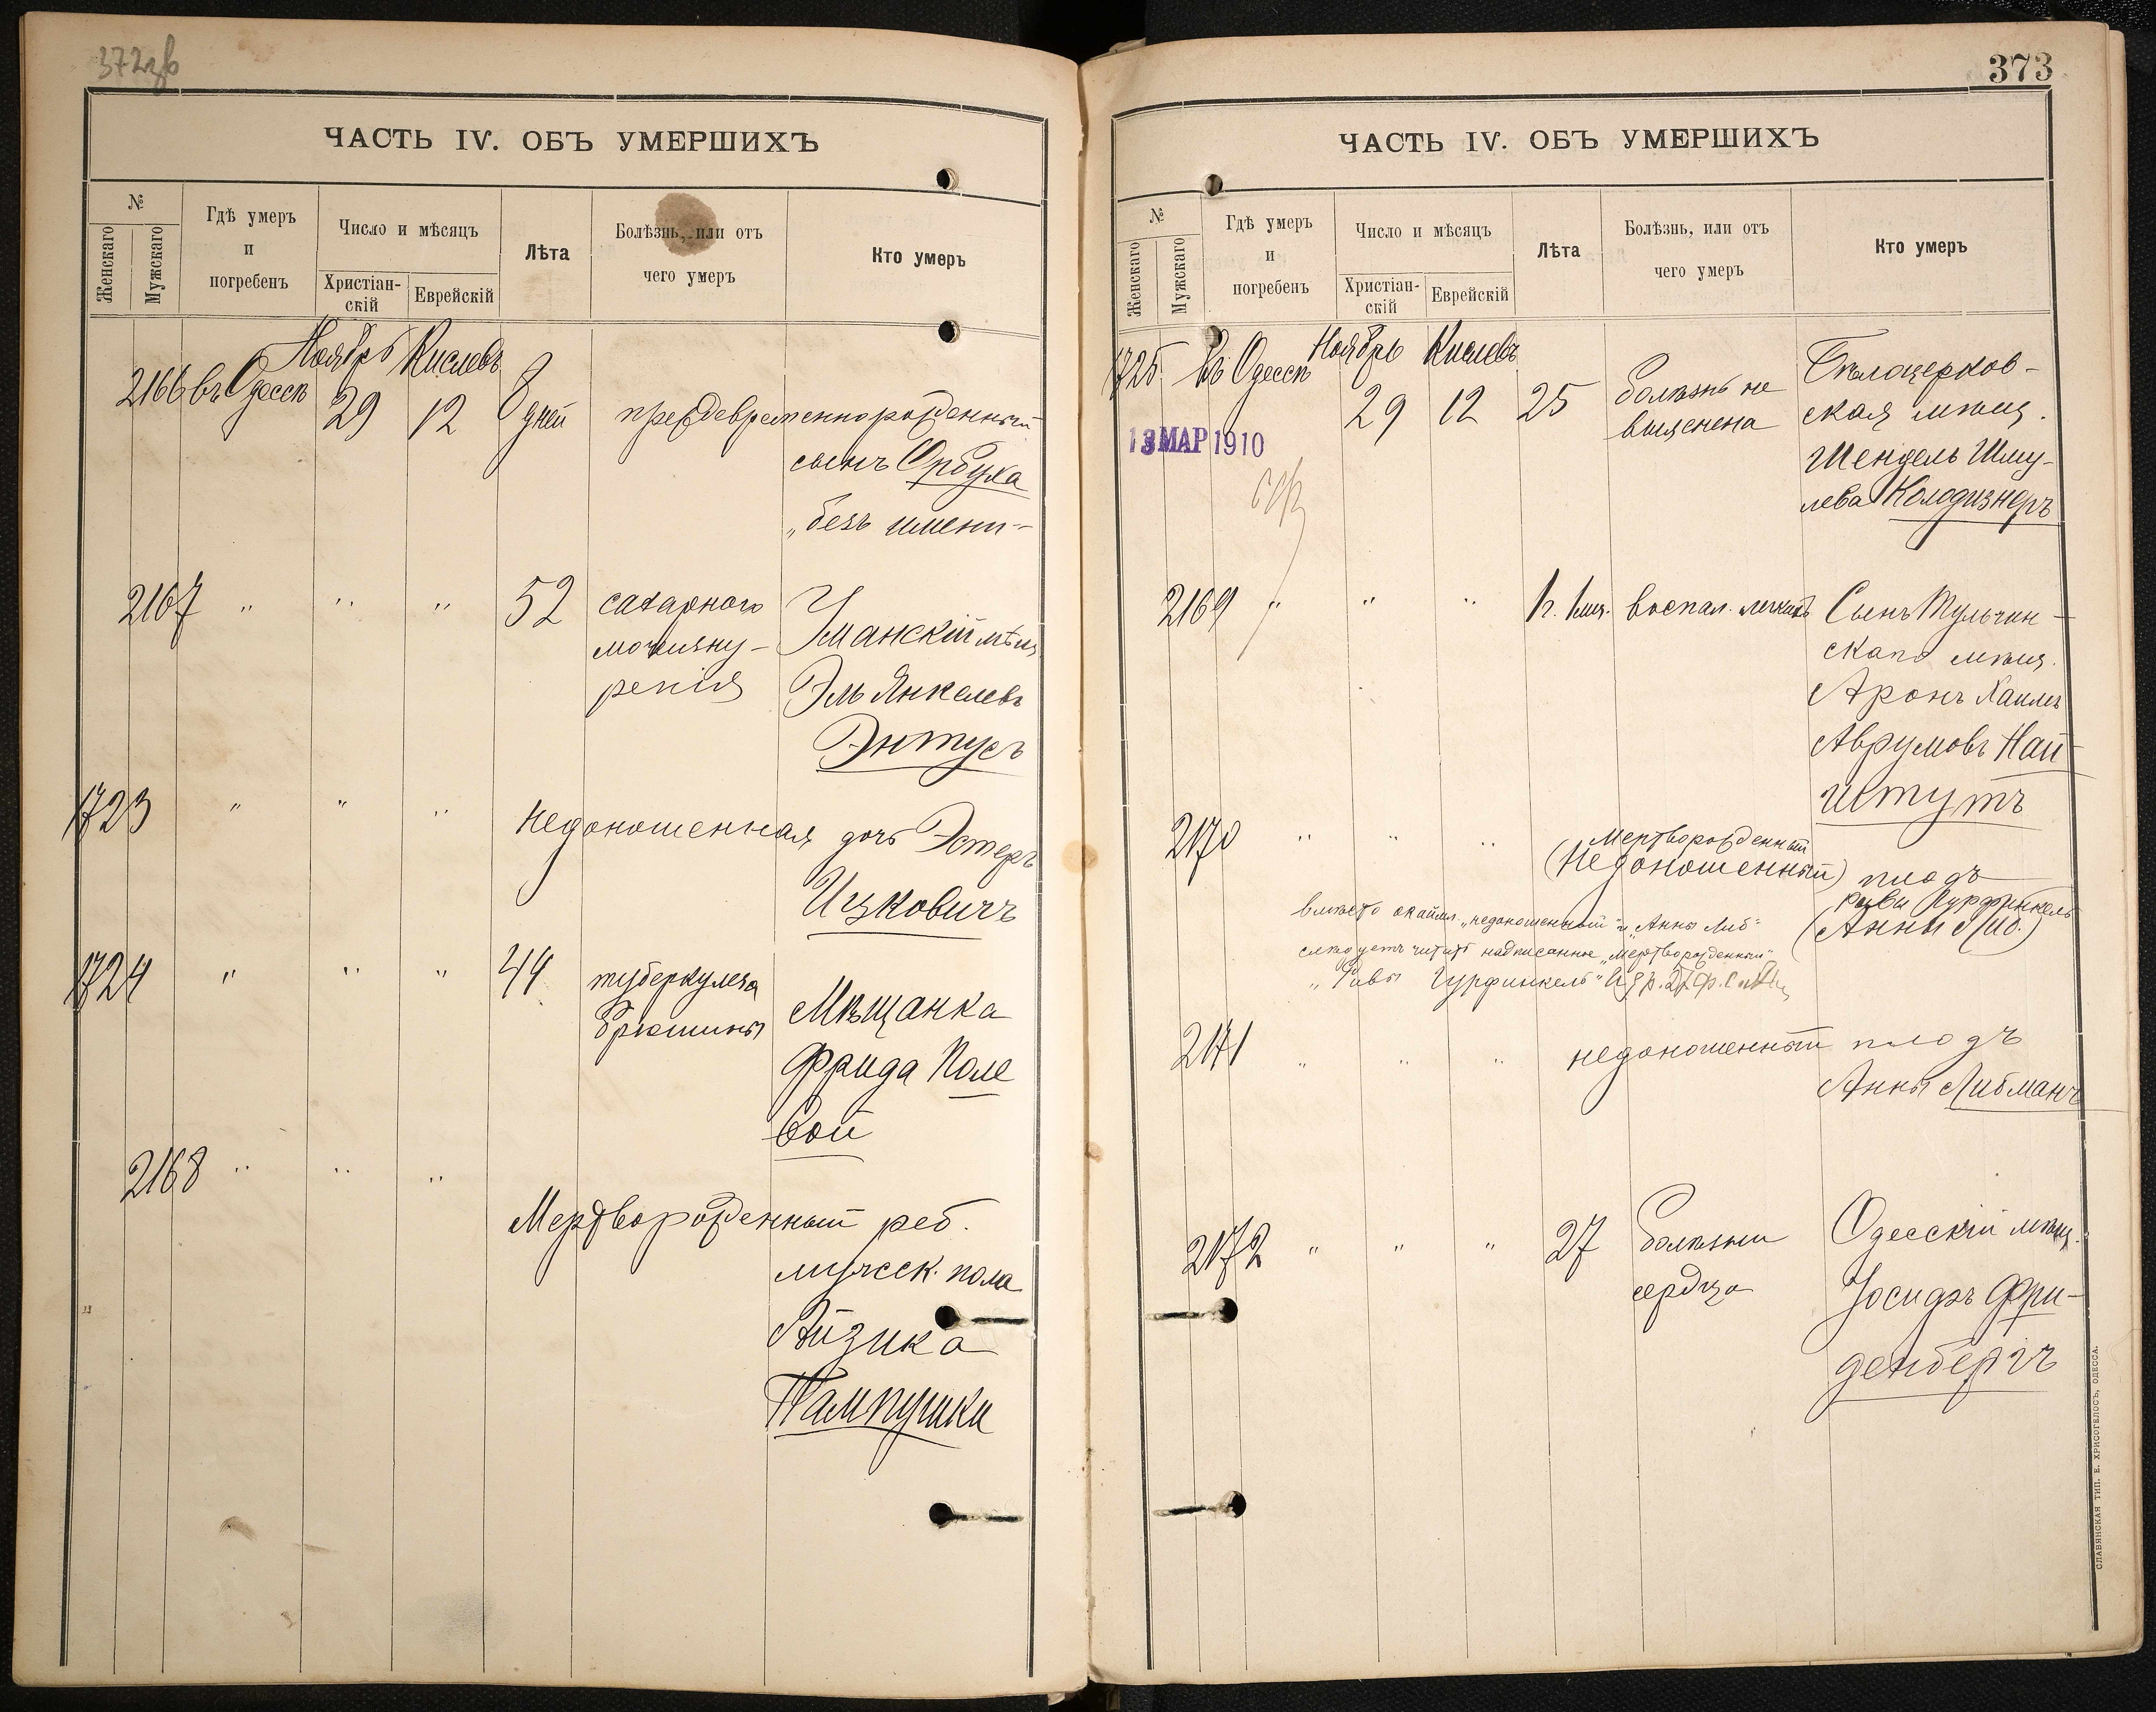 372зв
ЧАСТЬ IV. ОБЪ УМЕРШИХЪ
№
Женскаго
Мужскаго
Гдѣ умеръ
и
погребенъ
Число и мѣсяцъ
Христіан-
скій
Еврейскій
Лѣта
Болѣзнь, или отъ
чего умеръ
Кто умеръ
Ноябрь Кислевъ
2166 въ Одессѣ 29 12 8 дней преждевременнорожденный
сынъ Орбуха
„безъ имени"
2167 " " " 52 сахарнаго
мочеизну-
ренія
Уманскій мѣщ
Эль Янкелевъ
Энтусъ
1723 " " " Недоношенная дочь Эстеръ
Ицковичъ
1724 " " " 44 туберкулеза
брюшины
Мѣщанка
Фрида Поле
вой
2168 " " "
Мертворожденный реб.
мужеск. пола
Айзика
Пампушки
373
ЧАСТЬ IV. ОБЪ УМЕРШИХЪ
№
Женскаго
Мужскаго
Гдѣ умеръ
и
погребенъ
Число и мѣсяцъ
Христіан-
скій
Еврейскій
Лѣта
Болѣзнь, или отъ
чего умеръ
Кто умеръ
Ноябрь Кислевъ
1725 въ Одессѣ 29 12 25 болѣзнь не
выяснена
Бѣлоцерков-
ская мѣщ.
Шендель Шму-
лева Колодизнеръ
13 МАР 1910
2169 " " " 1г. 1мѣс. воспал. легкихъ Сынъ Тульчин-
скаго мѣщ.
Аронъ Хаимъ
Аврумовъ Най-
штутъ
2170 " " " Мертворожденный
(Недоношенный) плодъ
Ривы Гурфинкель
(Анны Либ.)
вмѣсто окайм. „недоношенный" и „Анны Либ"
слѣдуетъ читать надписанное „Мертворожденный"
„Ривы Гурфинкель"
2171 " " " недоношенный плодъ
Анны Либманъ
2172 " " " 27 болѣзни
сердца
Одесскій мѣщ.
Іосифъ Фри-
денбергъ
СЛАВЯНСКАЯ ТИП. Е. ХРИСОГЕЛОСЪ, ОДЕССА.